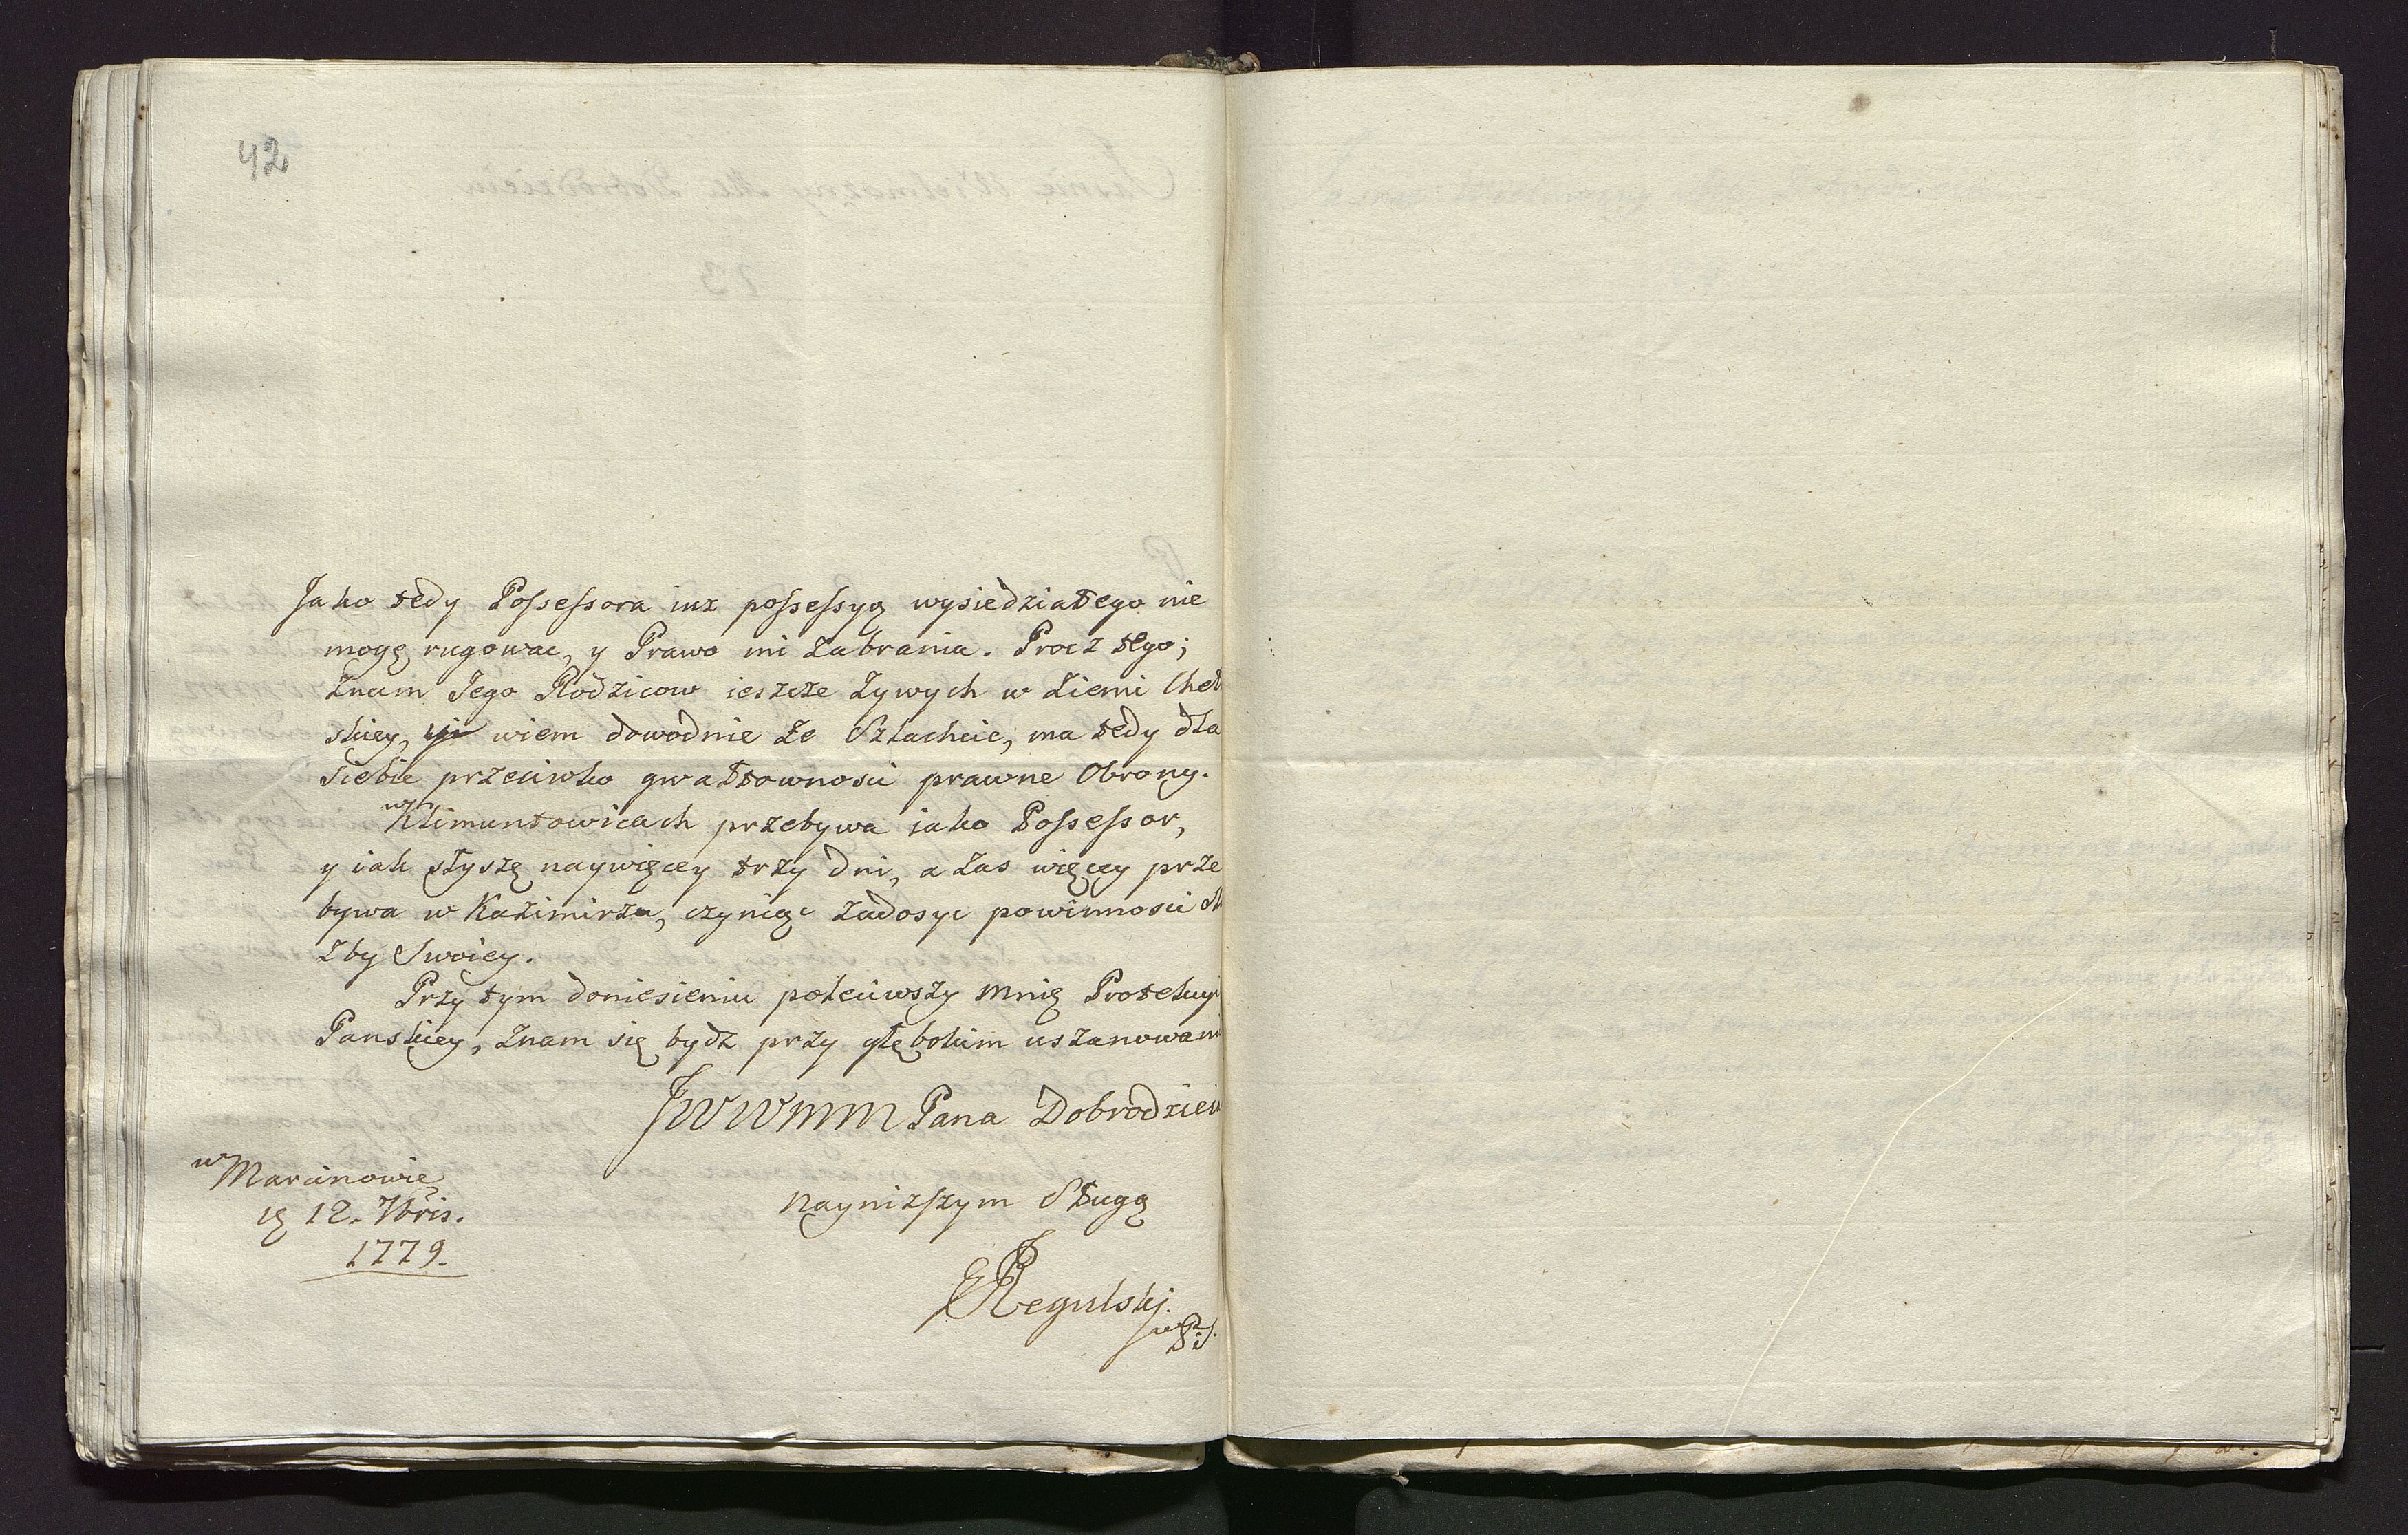 42
Jako tedy Possessora iuz possessyą wysiedziałego nie
mogę rugowac, y Prawo mi zabrania. Procz tego;
znam Jego Rodzicow ieszcze zywych w Ziemi Cheł
skiey, wiem dowodnie ze Szlachcic, ma tedy dla
siebie przeciwko gwałtownosci prawne Obrony.
w Klimuntowicach przebywa iako Possessor,
y iak słyszę naywięcey trzy dni, a zas więcey prze
bywa w Kazimirzu, czyniąc zadosyc powinnosci Słu
zby Swoiey.
Przy tym doniesieniu poleciwszy mnię Protekcyi
Panskiey, znam się bydz przy głębokim uszanowani
JWWMM Pana Dobrodzieia
w Marcinowic
1779.
naynizszym Sługą
Regulski.